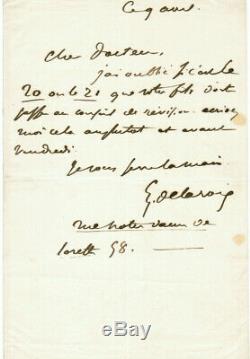 Ce 9 avril.
Cher docteur,
j'ai oublié si c'est le
20 ou le 21 que votre fils doit
passer au conseil de révision. écrivez
moi cela et avant
vendredi.
Je vous serre la main.
E. delacroix
rue notre dame de
lorette 58.